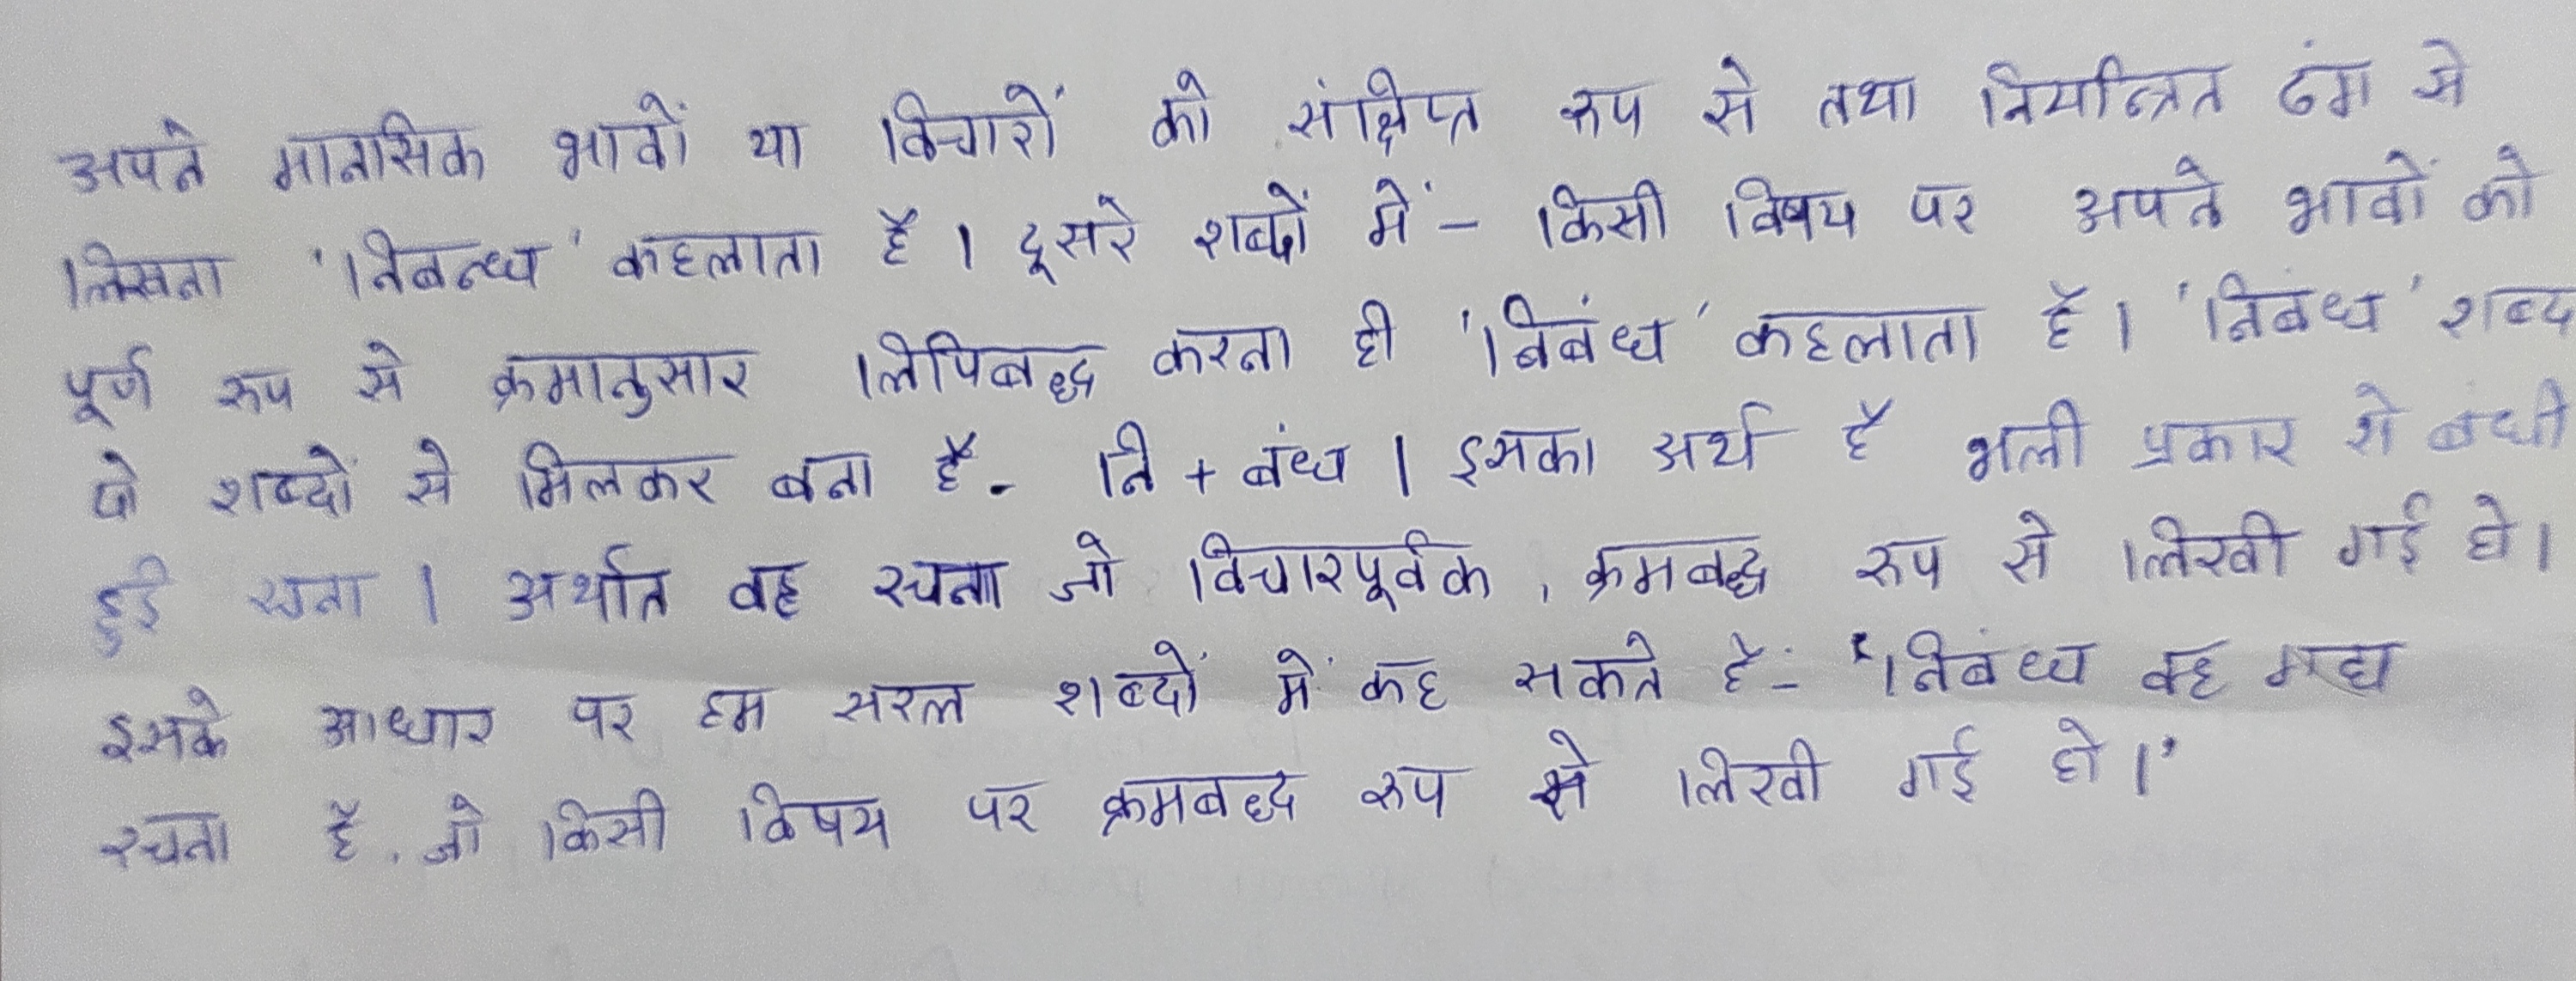 अपने मानसिक भावों या विचारों को संक्षिप्त रूप से तथा नियन्त्रित ढंग से
लिखना 'निबन्ध' कहलाता है । दूसरे शब्दों में - किसी विषय पर अपने भावों को
पूर्ण रूप से क्रमानुसार लिपिबद्ध करना ही 'निबंध' कहलाता है । 'निबंध' शब्द
दो शब्दों से मिलकर बना है - नि + बंध । इसका अर्थ है भली प्रकार से बंधी
हुई रचना । अर्थात वह रचना जो विचारपूर्वक , क्रमबद्ध रूप से लिखी गई हो ।
इसके आधार पर हम सरल शब्दों में कह सकते हैं - 'निबंध वह गद्य
रचना है , जो किसी विषय पर क्रमबद्ध रूप से लिखी गई हो ।'